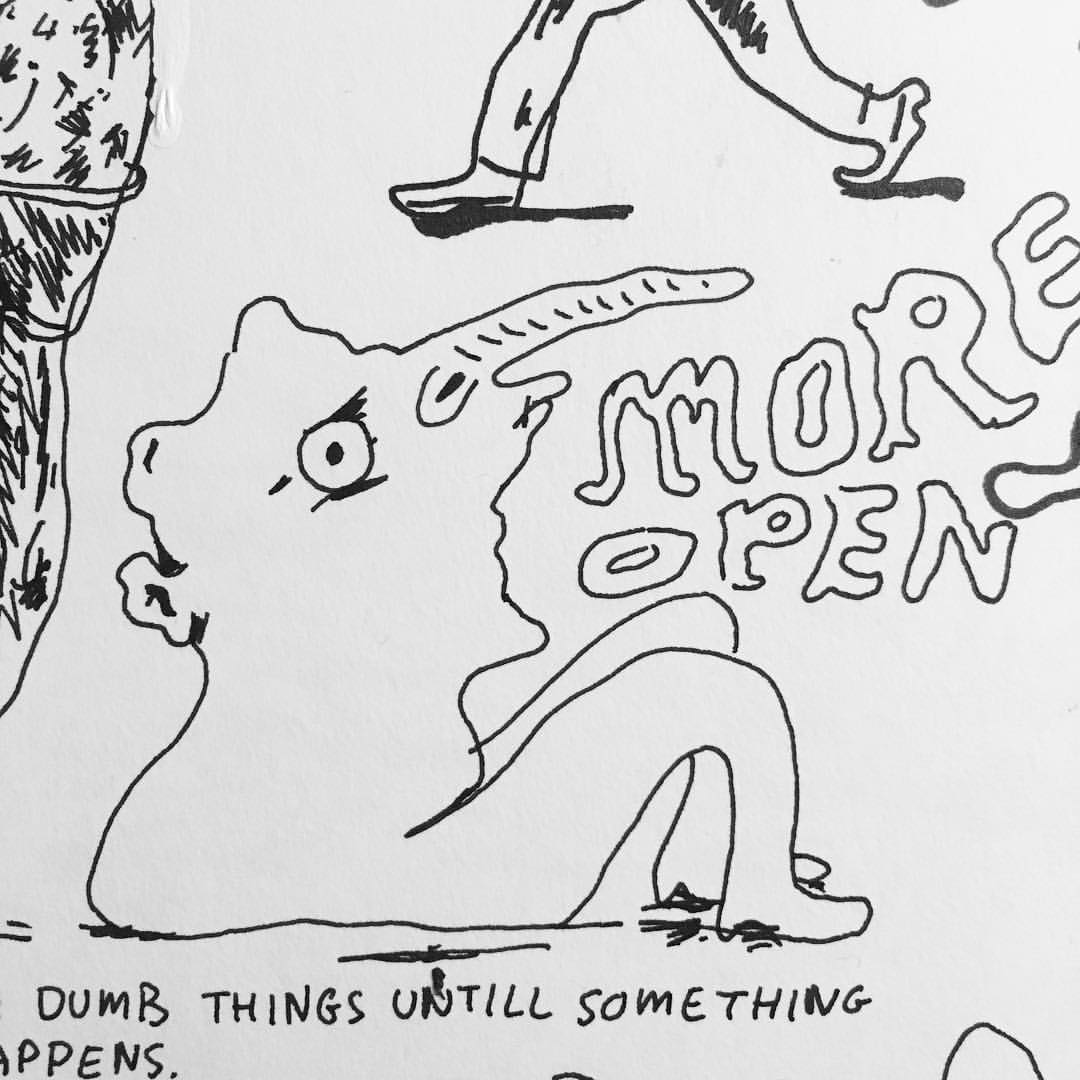 MORE
OPEN
DUMB THINGS UNTILL SOMETHING
APPENS.